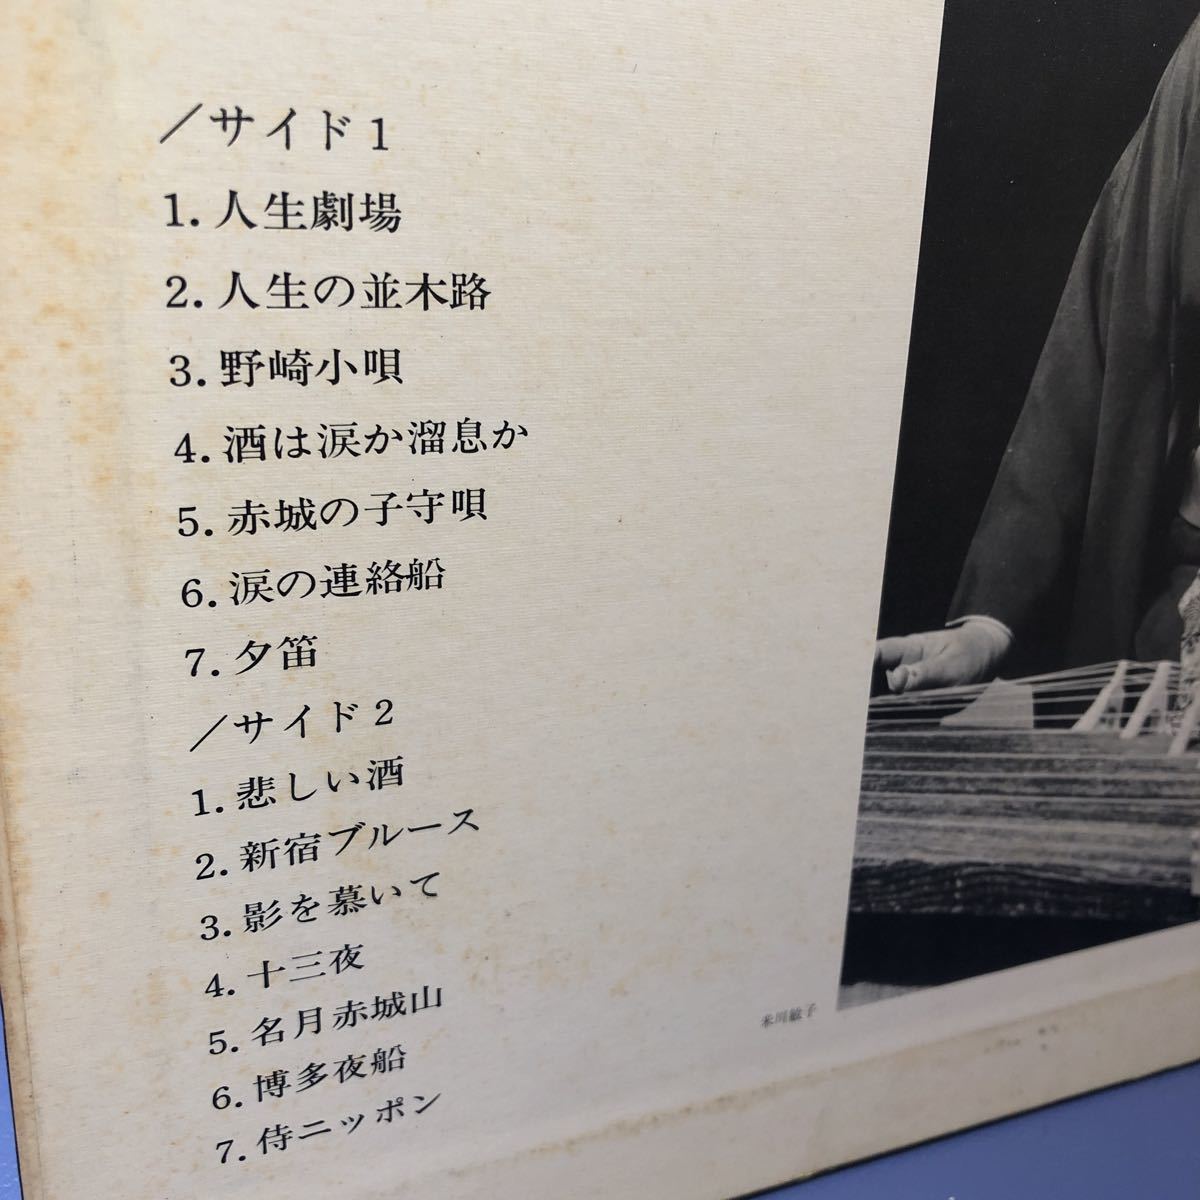 ／サイド1
1.人生劇場
2.人生の並木路
3.野崎小唄
4.酒は涙か溜息か
5.赤城の子守唄
6.涙の連絡船
7.夕笛
／サイド2
1.悲しい酒
2.新宿ブルース
3.影を慕いて
4.十三夜
5.名月赤城山
6.博多夜船
7.侍ニッポン
米川敏子